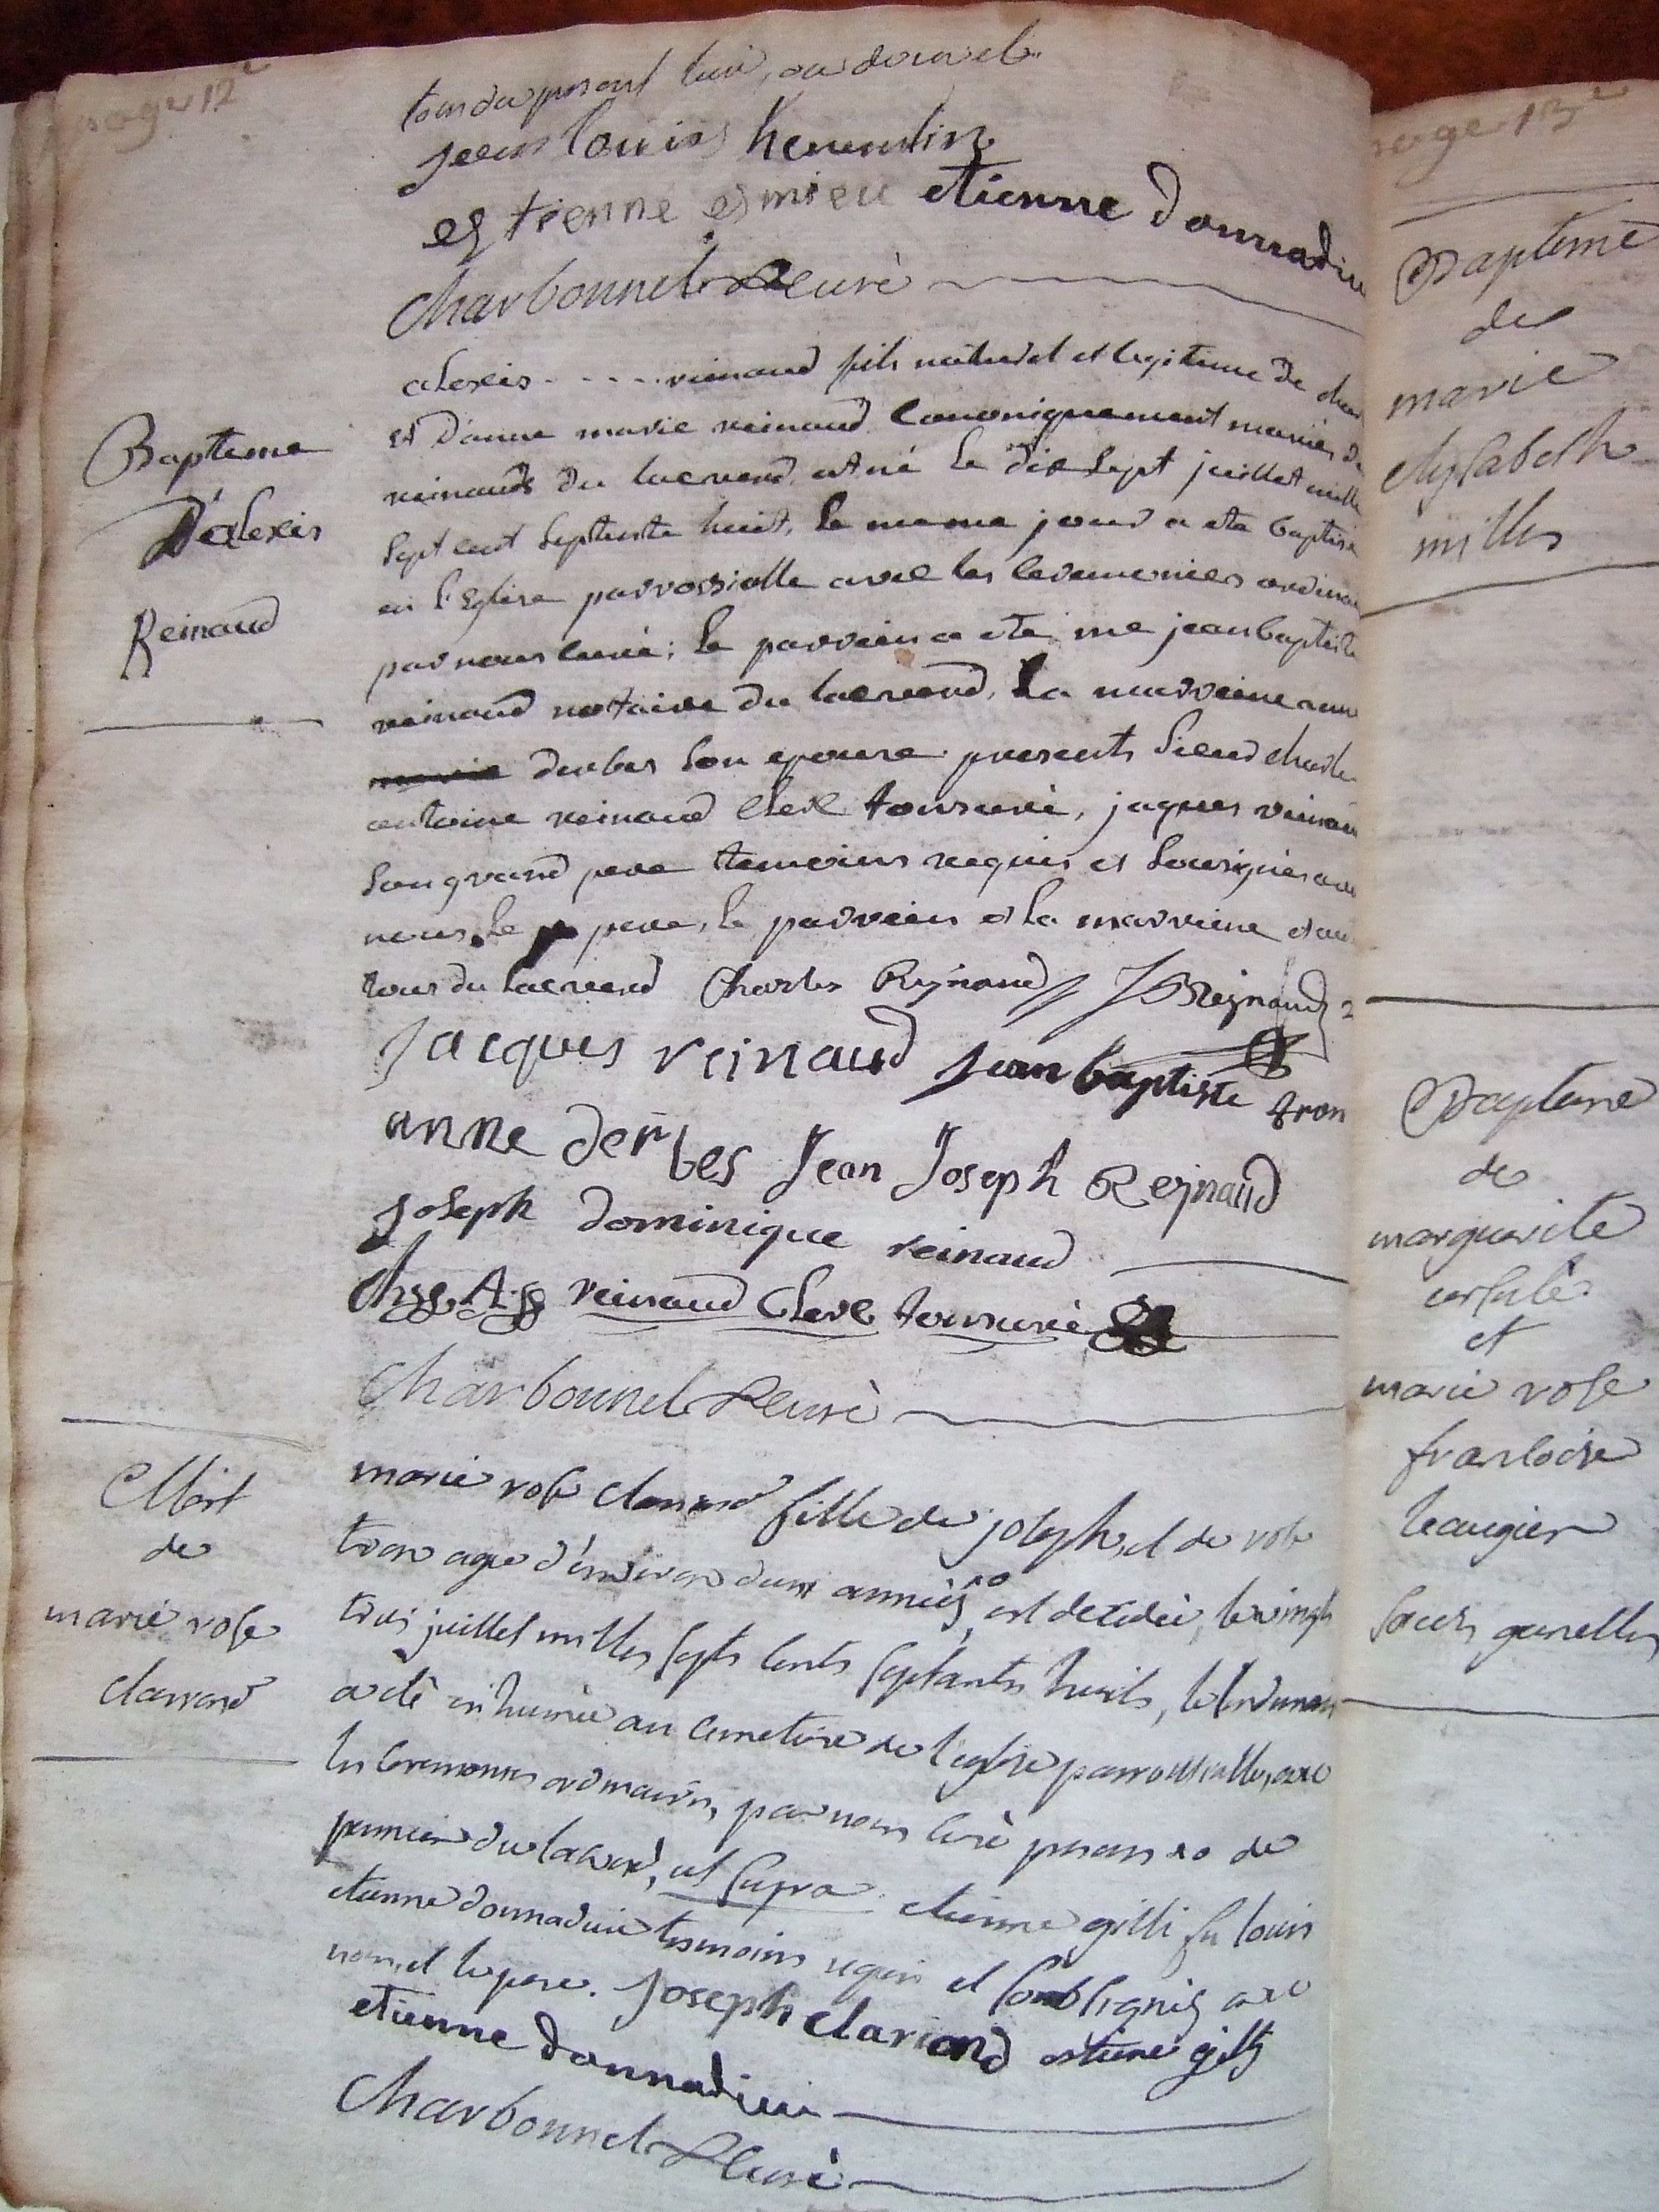 page 12
tous du present lieu,
jean louis heurulin
estienne esmieu etienne donnadieu
Charbonnel Curé
Bapteme
D'alexis
Reinaud
alexis . . . . . reinaud fils naturel et legitime de char
et D'anne marie reinaud Canoniquement mariés de
reinauds du lacreend est né le dix Sept juillet mille
Sept cent Septente huit, le meme jour a ete baptisé
en l'Eglise parroissialle avec les ceremonies ordinai
par nous curé; le parrein a ete me jean baptiste
reinaud notaire du lacreend, La marreine anne
derbes Son epouse presents Sieur charles
antoine reinaud Clerc tonsuré, jaques reinau
Son grand pere temoins requis et Sousignés ave
nous, le pere, le parrein et la marreine et au
tous du lacreend Charles Reynaud JB Reynaud
Jacques reinaud jean baptiste tron
anne derbes Jean Joseph Reynaud
joseph dominique reinaud
Chs. A. reinaud Clerc tonsuré
Charbonnel Curé
Mort
de
marie rose
clariond
marie rose clariond fille de joseph, et de rose
tron agée d'environ deux années, est decedée, le vingt
trois juillet milles septs cents septantes huits, le lendemain
a été inhumée au cimetiere de l'eglise parroissialle, avec
les ceremonies ordinaires, par nous curé presens
du lacreend, ut supra. etienne gilli fu louis
etienne donnadieu temoins requis et soubsignés avec
nous, et le pere. Joseph clariond estiene gilly
etienne donnadieu
Charbonnel Curé
page 13
Bapteme
de
marie
elysabeth
milles
Bapteme
de
marguerite
ursule
et
marie rose
francoise
leaugier
soeurs gemelles